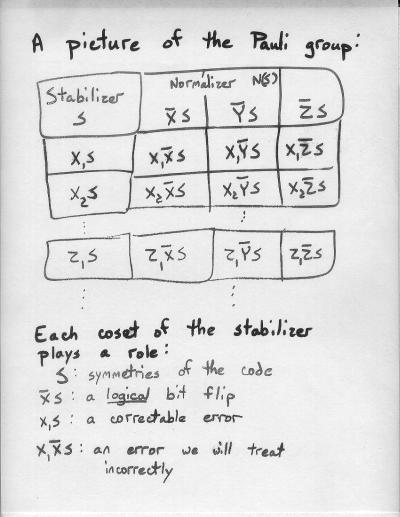 A picture of the Pauli group:
Normalizer N(S)
Stabilizer
S X̄S ȲS Z̄S
X₁S X₁X̄S X₁ȲS X₁Z̄S
X₂S X₂X̄S X₂ȲS X₂Z̄S
Z₁S Z₁X̄S Z₁ȲS Z₁Z̄S
Each coset of the stabilizer
plays a role:
S: symmetries of the code
X̄S: a logical bit flip
X₁S: a correctable error
X₁X̄S: an error we will treat
incorrectly